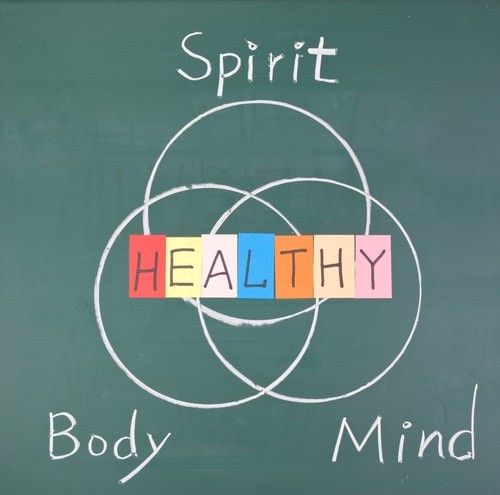 Spirit
HEALTHY
Body Mind